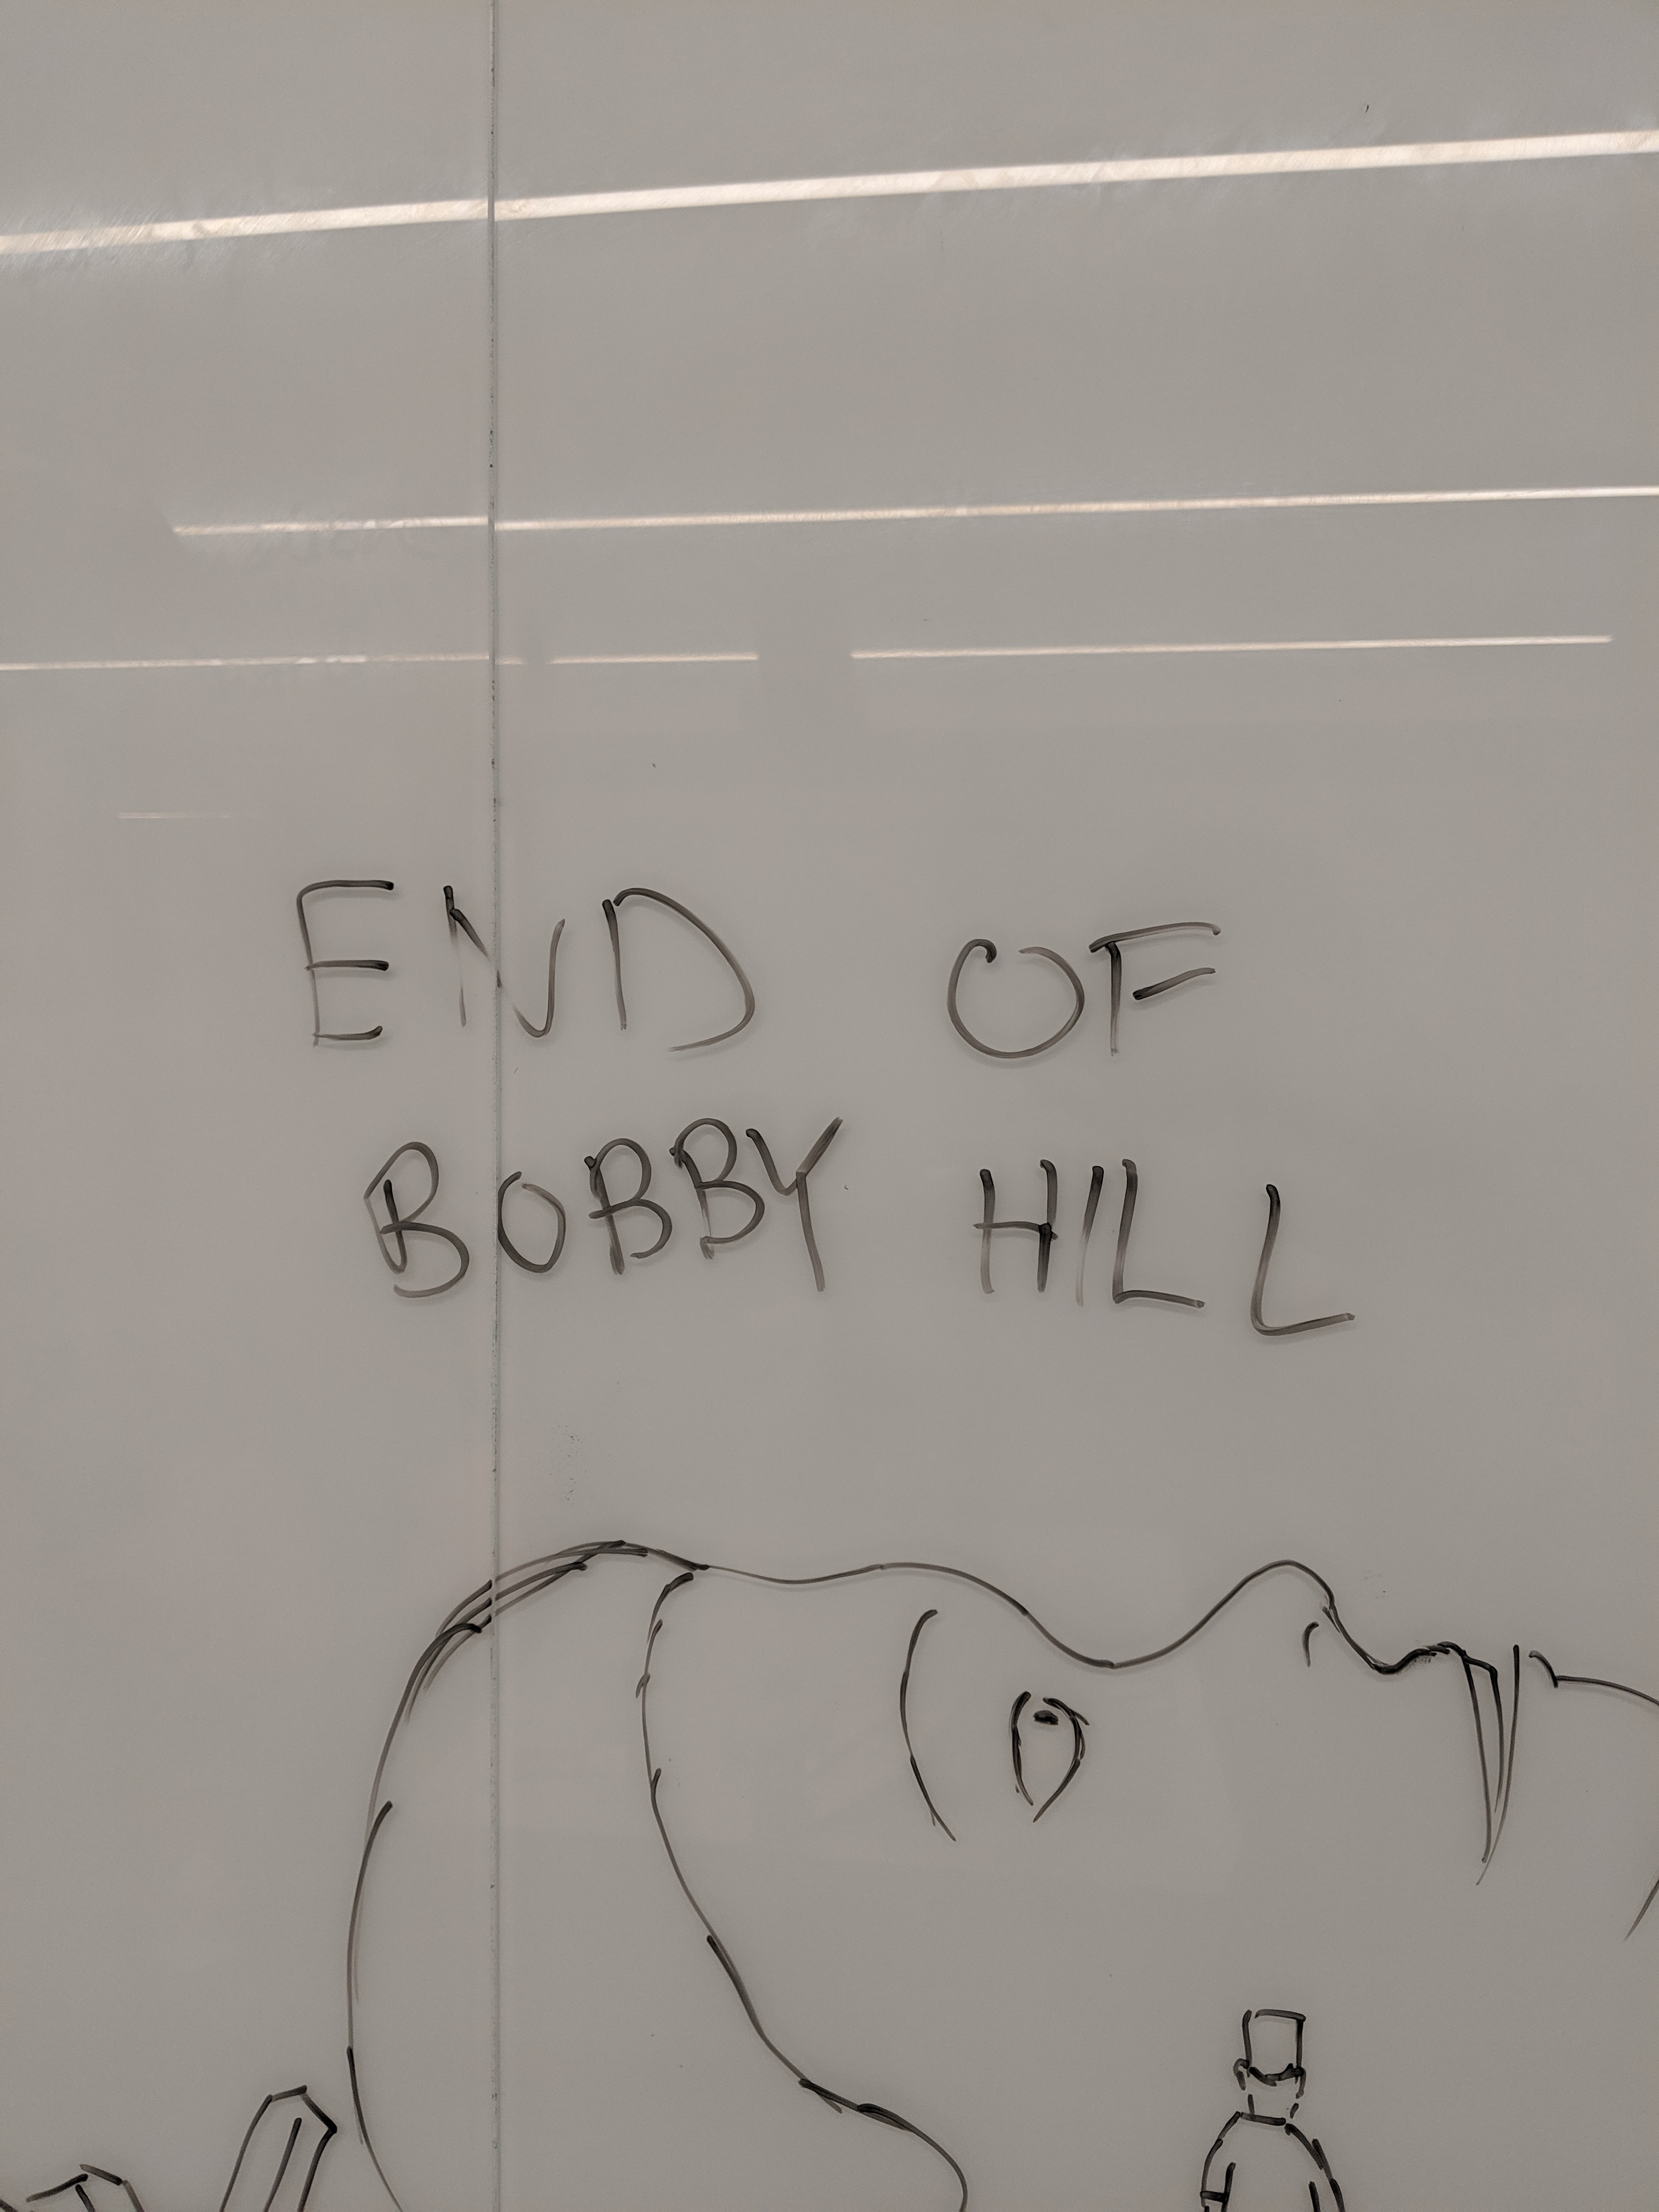 END OF
BOBBY HILL